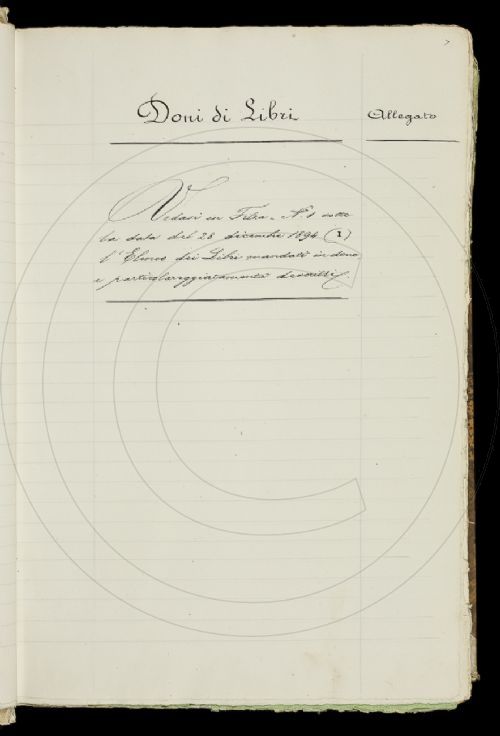 7
Doni di Libri
Allegato
Vedasi in Filza N.° 1 sotto
la data del 28 dicembre 1894 (1)
l'Elenco dei Libri mandati in dono
e particolareggiatamente descritti